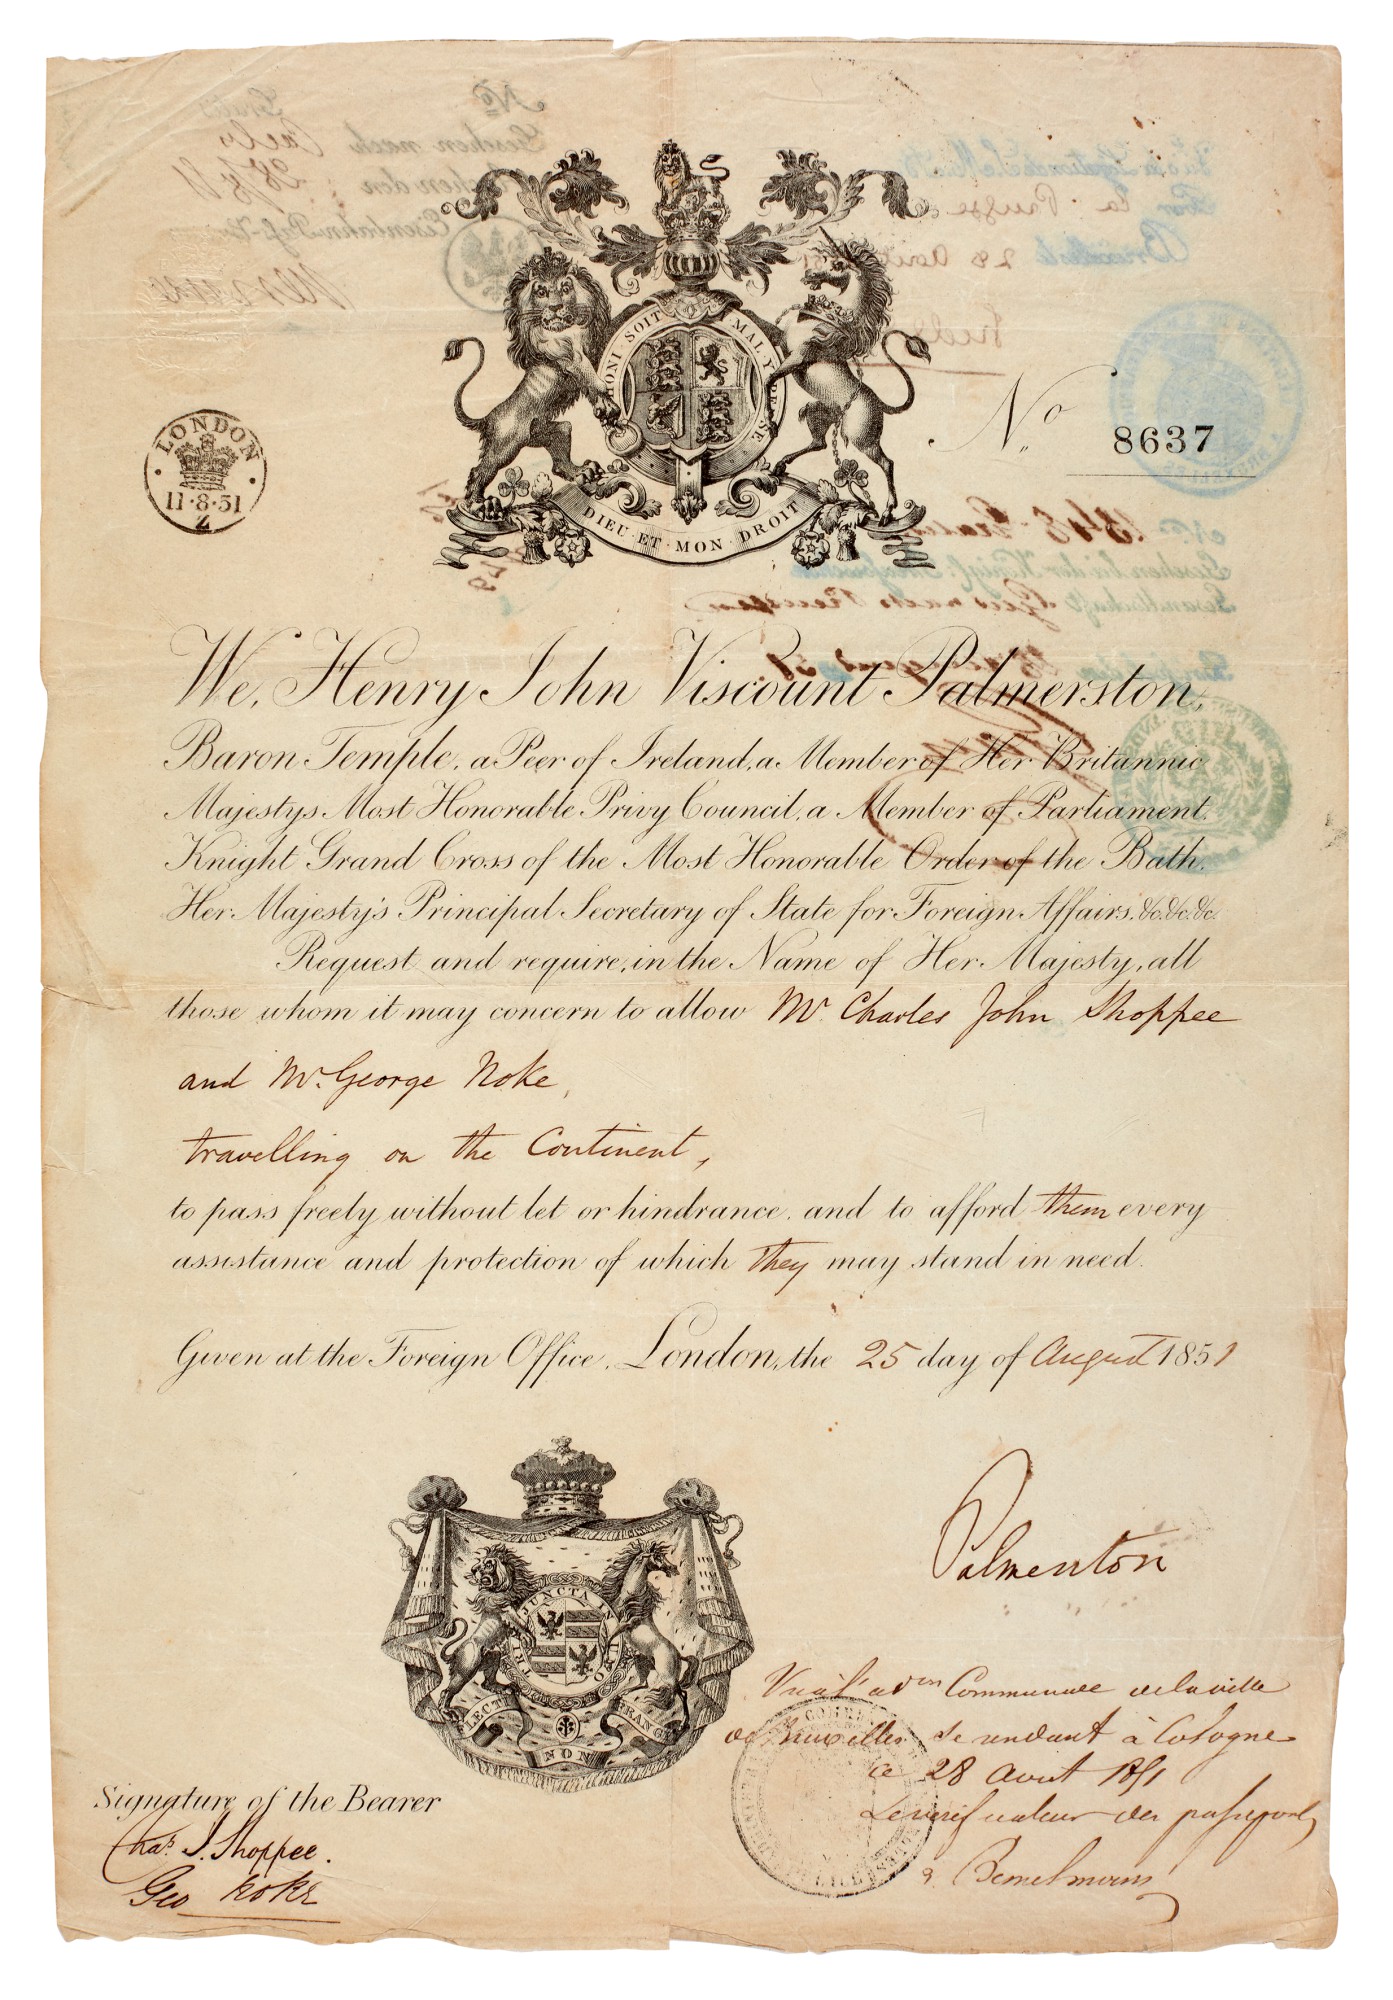 LONDON
11·8·51
Z
HONI SOIT
MAL Y PENSE
DIEU ET MON DROIT
No
8637
We, Henry John Viscount Palmerston,
Baron Temple, a Peer of Ireland, a Member of Her Britannic
Majestys Most Honorable Privy Council, a Member of Parliament,
Knight Grand Cross of the Most Honorable Order of the Bath,
Her Majesty's Principal Secretary of State for Foreign Affairs, &c. &c. &c.
Request and require, in the Name of Her Majesty, all
those whom it may concern to allow Mr. Charles John Shoppee
and Mr. George Noke,
travelling on the Continent,
to pass freely without let or hindrance, and to afford them every
assistance and protection of which they may stand in need.
Given at the Foreign Office, London, the 25 day of August 1851
Palmerston
TRIA JUNCTA IN UNO
FLECTI NON FRANGI
Vu à l'adon Communale de la ville
de Bruxelles se rendant à Cologne
ce 28 Aout 1851
Le vérificateur des passeports
Bemelmans
Signature of the Bearer
Chas. J. Shoppee.
Geo Noke